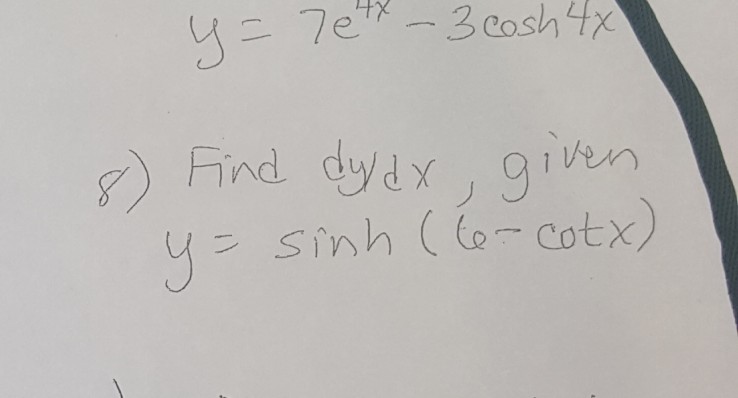 y = 7e^4x - 3 cosh 4x
8) Find dy/dx, given
y = sinh (6 - cotx)